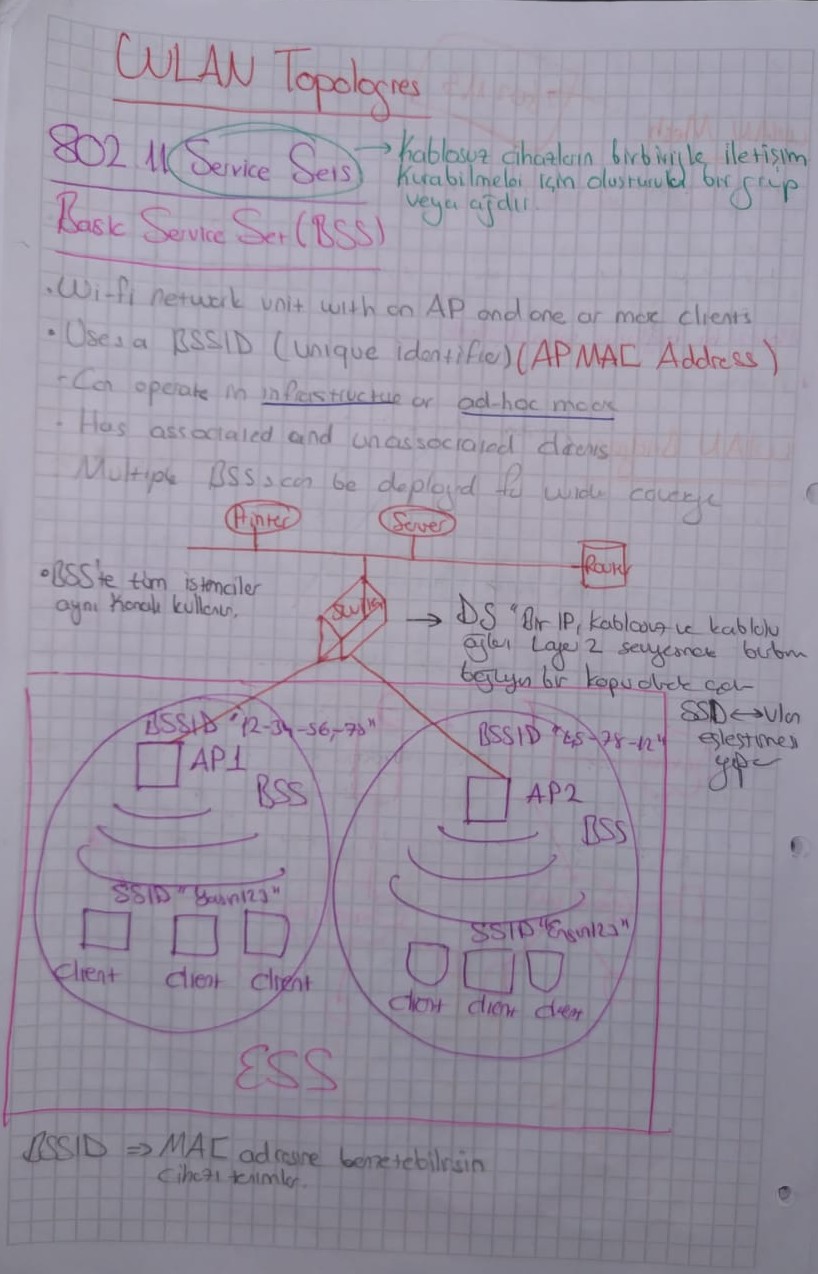 WLAN Topologies
802.11 Service Sets
→ Kablosuz cihazların birbiriyle iletişim
kurabilmeleri için oluşturulan bir grup
veya ağdır.
Basic Service Set (BSS)
. Wi-fi network unit with an AP and one or more clients
• Uses a BSSID (unique identifier) (AP MAC Address)
- Can operate in infrastructure or ad-hoc mode
. Has associated and unassociated clients
Multiple BSSs can be deployed for wide coverage
Printer
Server
Router
• BSS'te tüm istemciler
aynı kanalı kullanır.
Switch
→ DS "Bir IP, kablosuz ve kablolu
ağları Layer 2 seviyesinde
bağlayan bir köprü olarak
SSID ↔ Vlan
eşleştirmesi
yapar
BSSID "12-34-56-78"
AP1
BSS
SSID "Yasin123"
client client client
BSSID -78-12"
AP2
BSS
SSID "Ersin123"
client client client
ESS
BSSID ⇒ MAC adresine benzetebilirsin
Cihazı tanımlar.